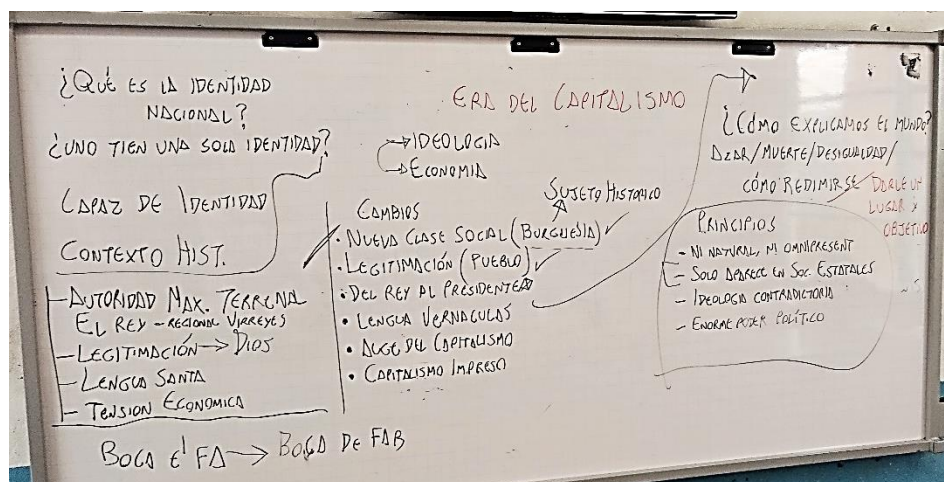 ¿QUÉ ES LA IDENTIDAD
NACIONAL?
¿UNO TIEN UNA SOLA IDENTIDAD?
CAPAZ DE IDENTIDAD
CONTEXTO HIST.
- AUTORIDAD MAX. TERRENAL
EL REY - REGIONAL VIRREYES
- LEGITIMACIÓN → DIOS
- LENGUA SANTA
- TENSION ECONOMICA
BOCA E' FA → BOCA DE FAB
ERA DEL CAPITALISMO
→ IDEOLOGIA
→ ECONOMIA
SUJETO HISTORICO
CAMBIOS
• NUEVA CLASE SOCIAL (BURGUESIA)
• LEGITIMACIÓN (PUEBLO)
• DEL REY AL PRESIDENTE
• LENGUA VERNACULAS
• AUGE DEL CAPITALISMO
• CAPITALISMO IMPRESO
¿CÓMO EXPLICAMOS EL MUNDO?
AZAR/MUERTE/DESIGUALDAD/
CÓMO REDIMIRSE
DARLE UN
LUGAR Y
OBJETIVO
PRINCIPIOS
- NI NATURAL, NI OMNIPRESENT
- SOLO APARECE EN SOC. ESTATALES
- IDEOLOGIA CONTRADICTORIA
- ENORME PODER POLÍTICO